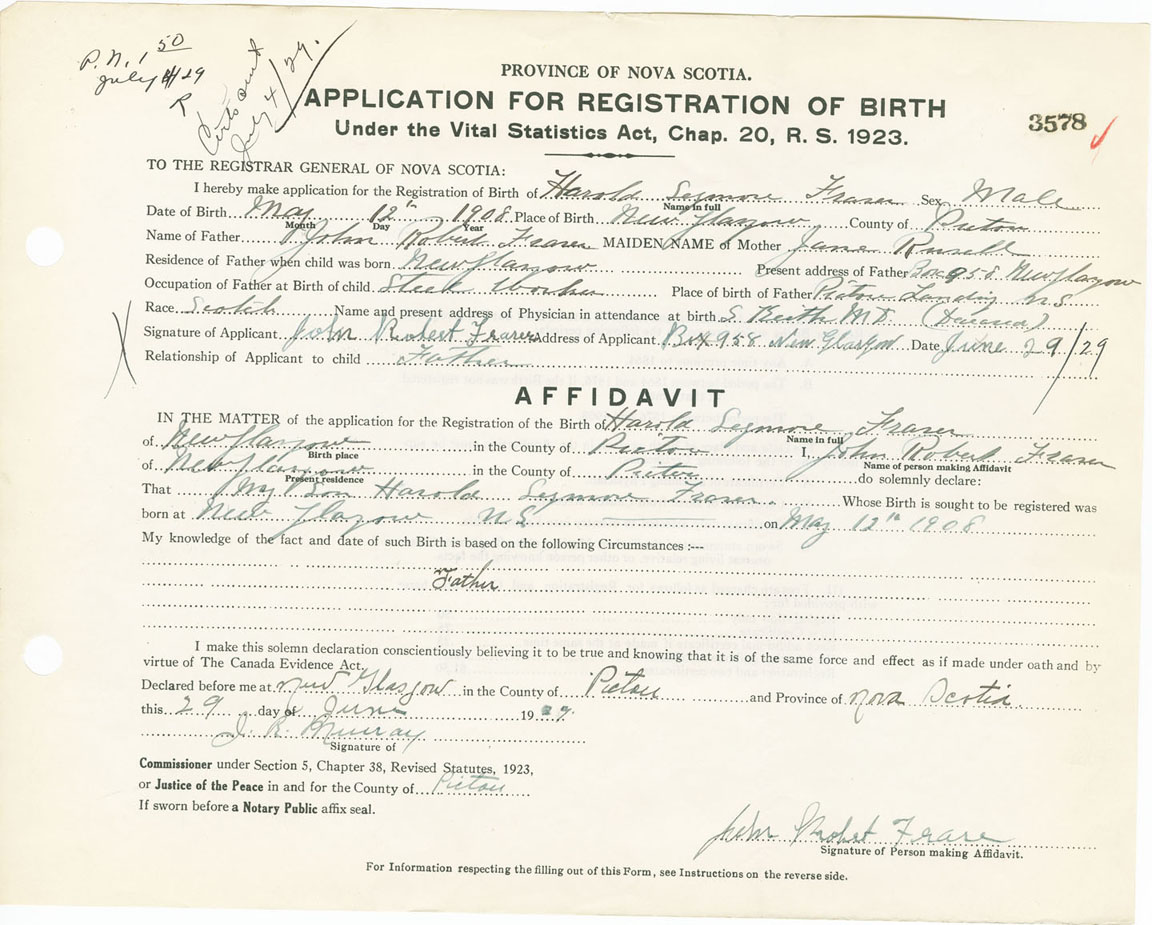 P.N. 1 50
July 4/29
R
Cert sent
July 4/29.
PROVINCE OF NOVA SCOTIA.
APPLICATION FOR REGISTRATION OF BIRTH
Under the Vital Statistics Act, Chap. 20, R. S. 1923.
3578
TO THE REGISTRAR GENERAL OF NOVA SCOTIA:
I hereby make application for the Registration of Birth of Harold Seymore Fraser Sex Male
Name in full
Date of Birth May 12th 1908 Place of Birth New Glasgow County of Pictou
Month Day Year
Name of Father John Robert Fraser MAIDEN NAME of Mother Jane Russell
Residence of Father when child was born New Glasgow Present address of Father Box 958 New Glasgow
Occupation of Father at Birth of child Steel Worker Place of birth of Father Pictou Landing N.S
Race Scotch Name and present address of Physician in attendance at birth S. Keith M.D. (Deceased)
Signature of Applicant John Robert Fraser Address of Applicant Box 958 New Glasgow Date June 29/29
Relationship of Applicant to child Father
AFFIDAVIT
IN THE MATTER of the application for the Registration of the Birth of Harold Seymore Fraser
Name in full
of New Glasgow in the County of Pictou I, John Robert Fraser
Birth place Name of person making Affidavit
of New Glasgow in the County of Pictou do solemnly declare:
Present residence
That My Son Harold Seymore Fraser. Whose Birth is sought to be registered was
born at New Glasgow N.S on May 12th 1908
My knowledge of the fact and date of such Birth is based on the following Circumstances :---
Father
I make this solemn declaration conscientiously believing it to be true and knowing that it is of the same force and effect as if made under oath and by
virtue of The Canada Evidence Act.
Declared before me at New Glasgow in the County of Pictou and Province of Nova Scotia
this 29 day of June 1929.
J. R. Murray
Signature of
Commissioner under Section 5, Chapter 38, Revised Statutes, 1923,
or Justice of the Peace in and for the County of Pictou
If sworn before a Notary Public affix seal.
John Robert Fraser
Signature of Person making Affidavit.
For Information respecting the filling out of this Form, see Instructions on the reverse side.